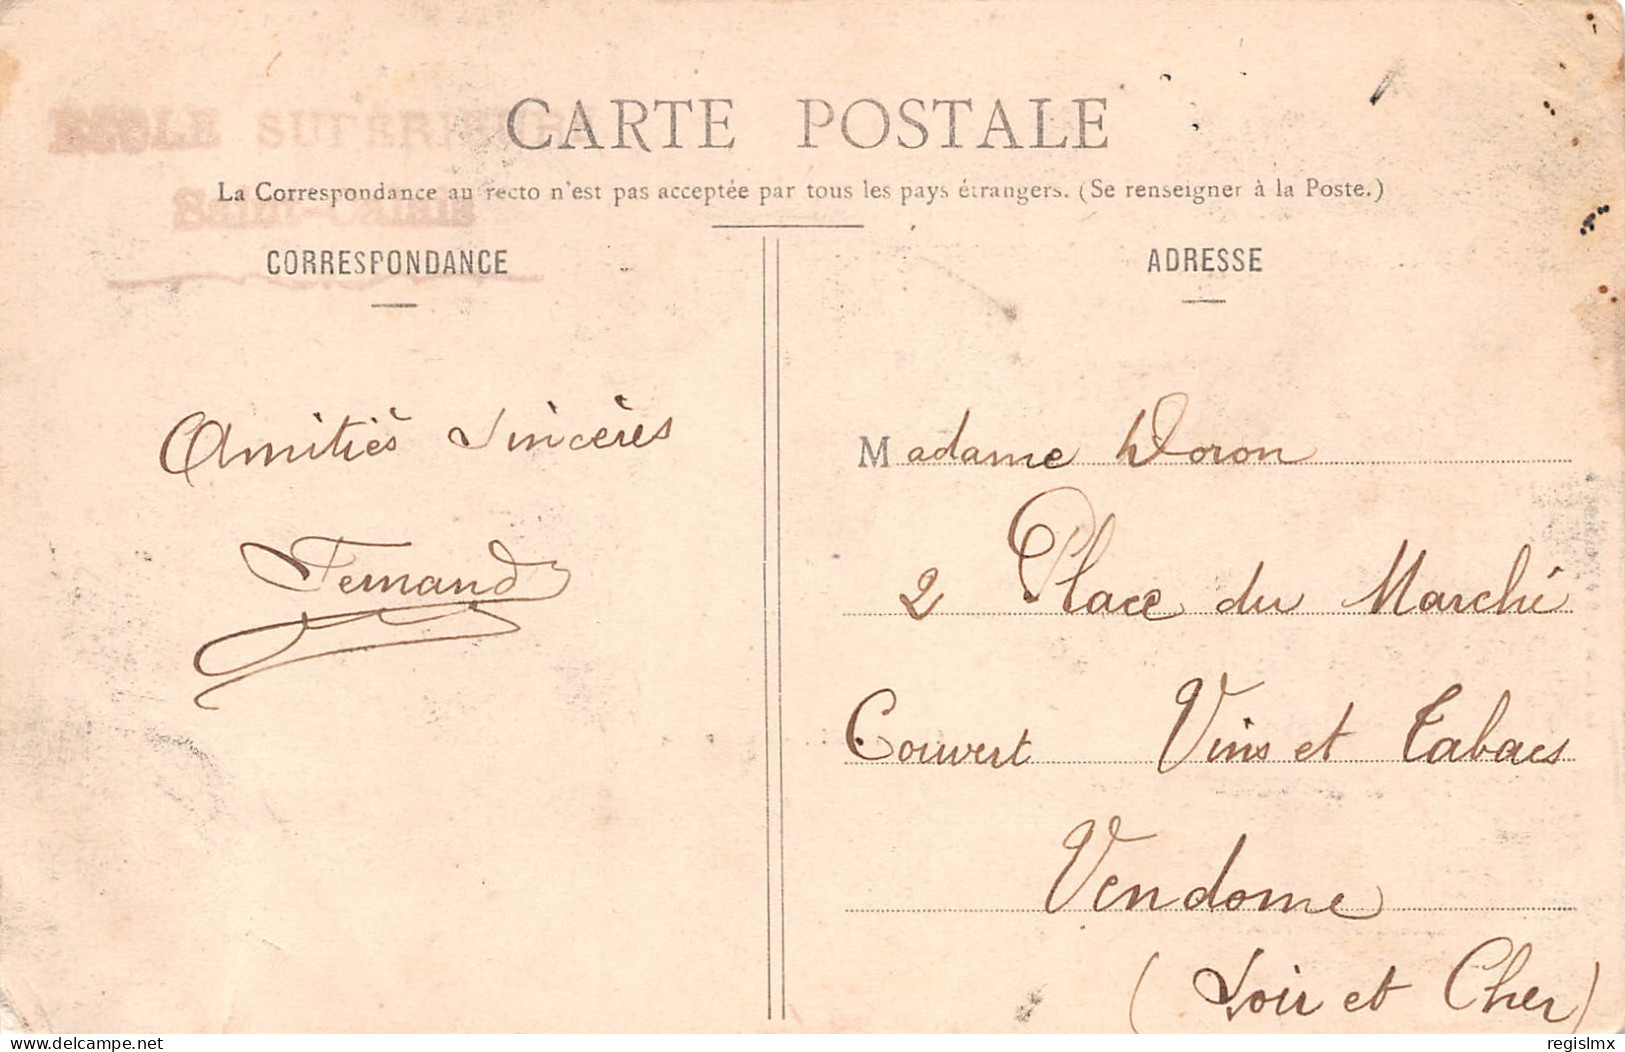 ECOLE SUPÉRIEURE
CARTE POSTALE
La Correspondance au recto n'est pas acceptée par tous les pays étrangers. (Se renseigner à la Poste.)
Saint-Calais
CORRESPONDANCE
Amitiés Sincères
Fernand
ADRESSE
Madame Doron
2 Place du Marché
Couvert Vins et Tabacs
Vendome
(Loir et Cher)
delcampe.net
regislmx